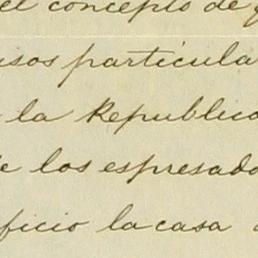 el concepto de
usos particula
la Republica
e los espresado
ficio la casa